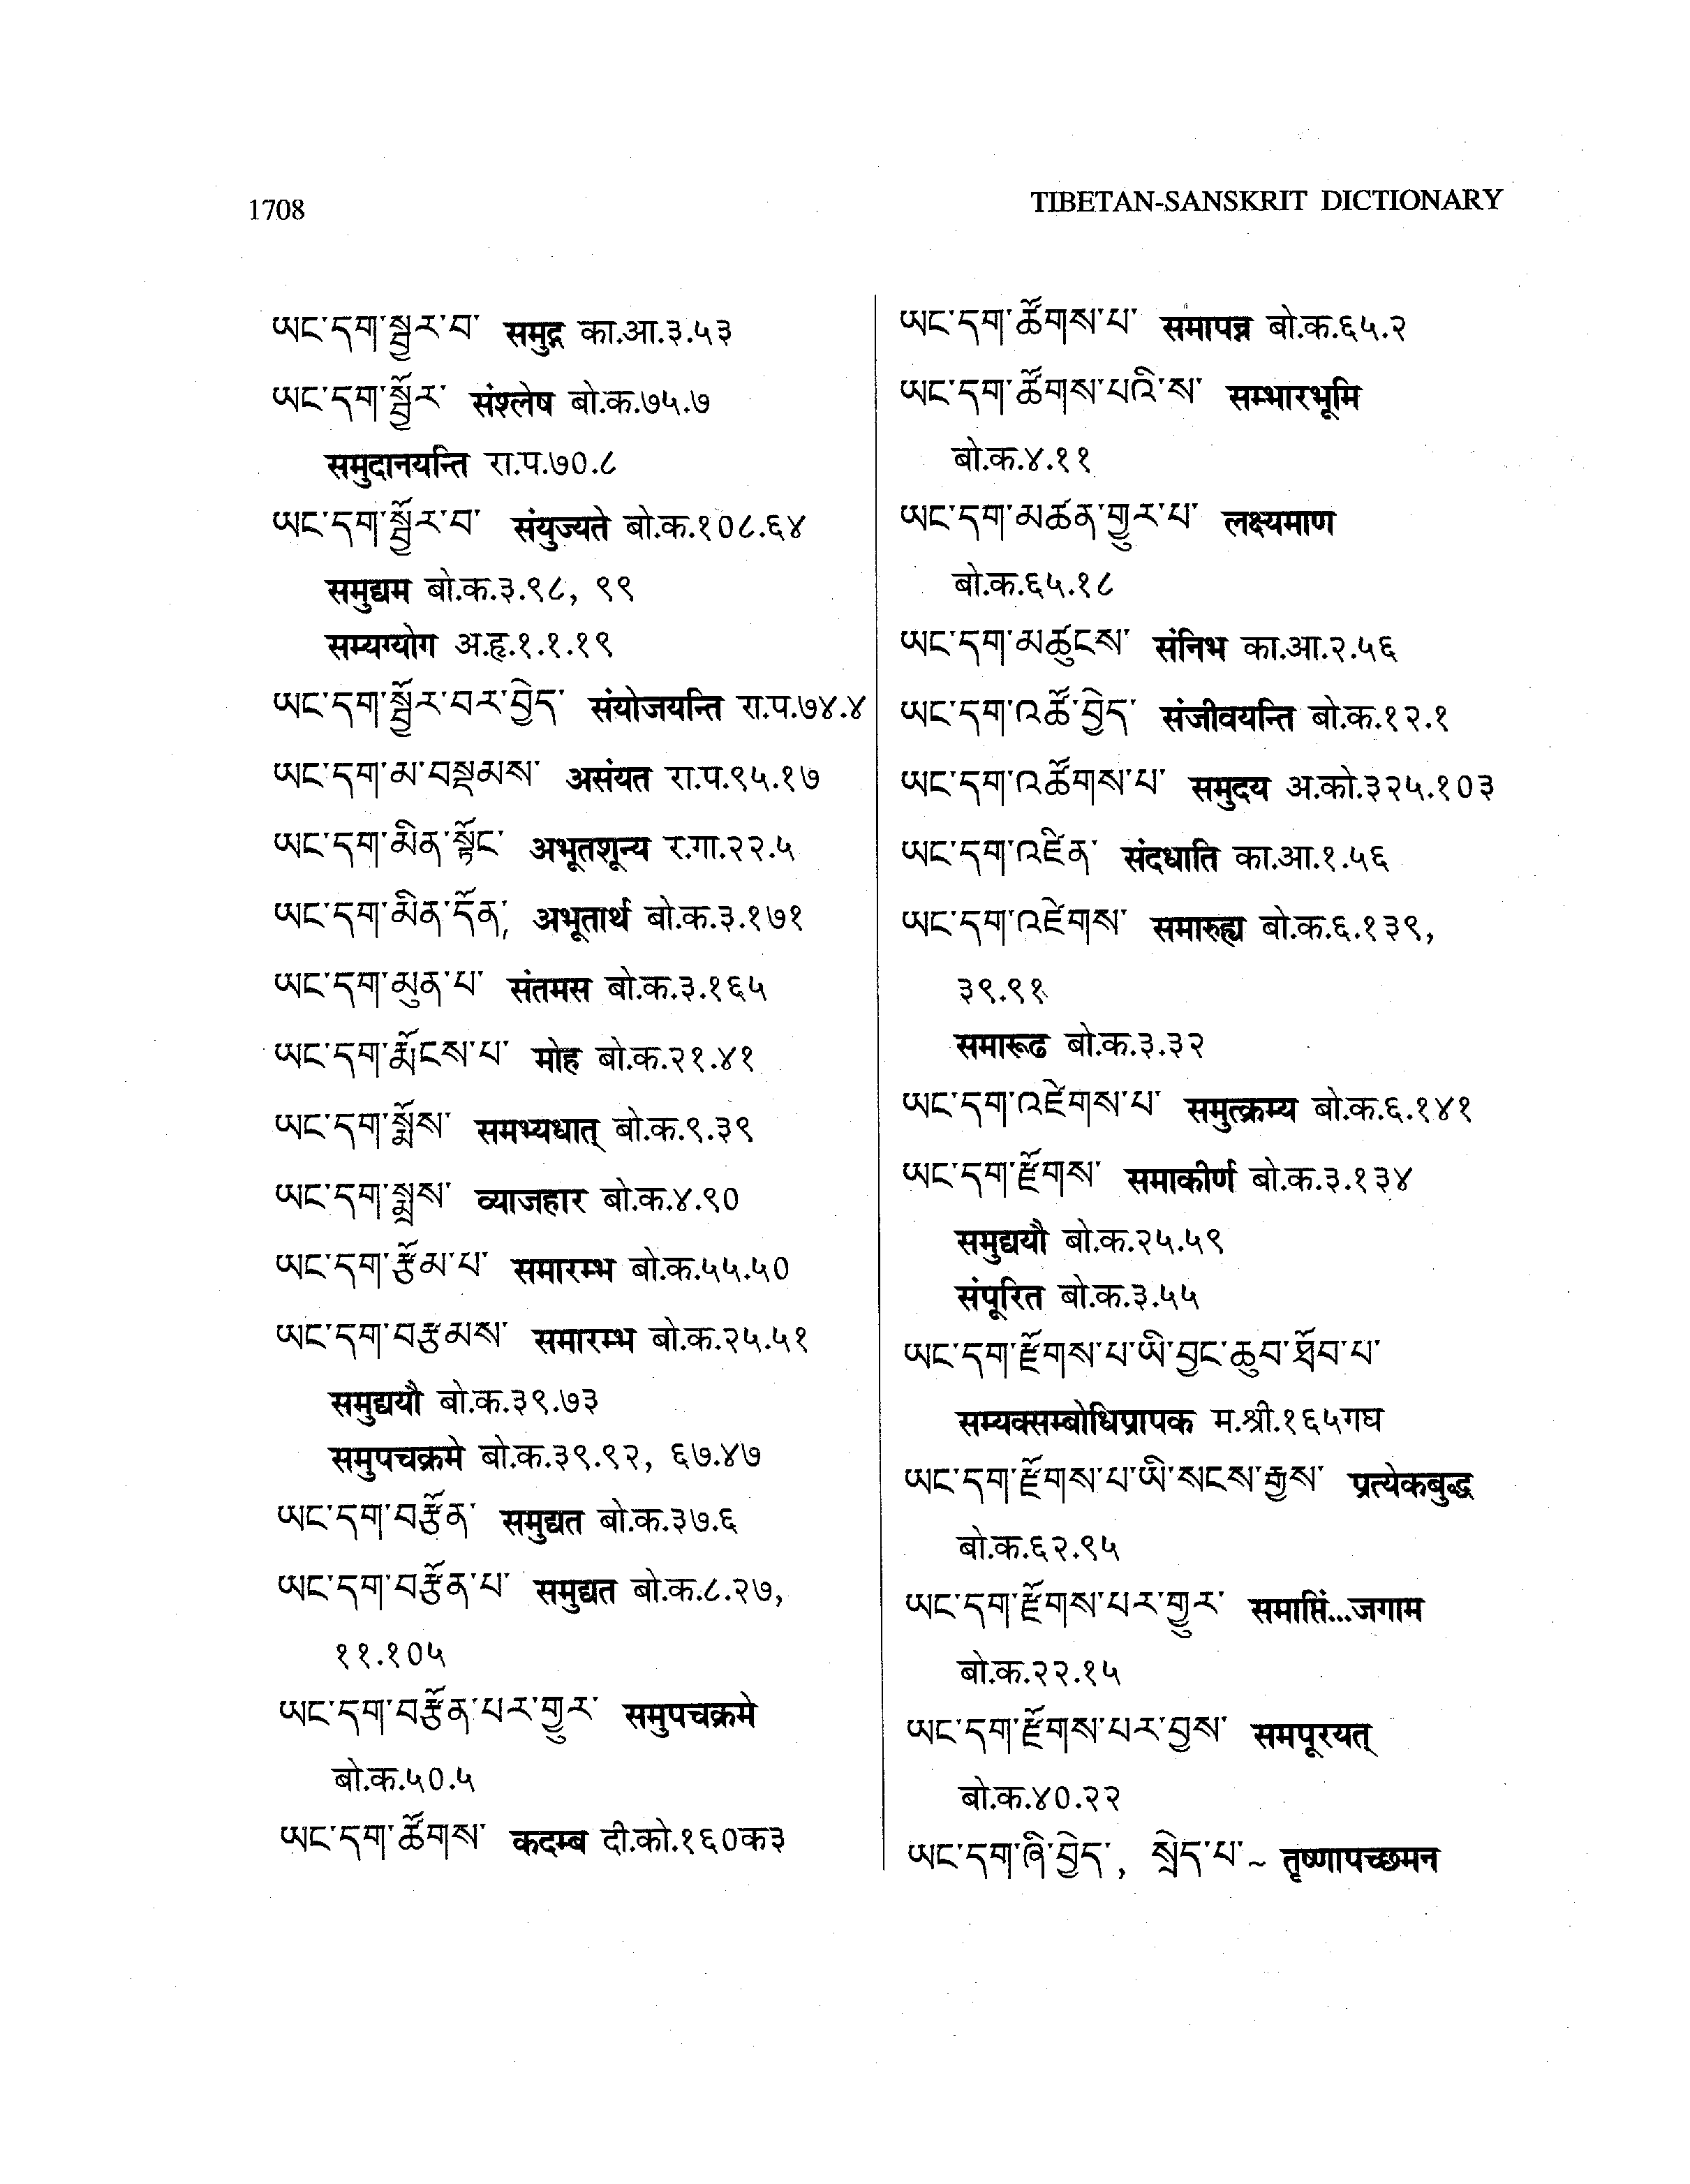 1708
TIBETAN-SANSKRIT DICTIONARY
ཡང་དག་སྦྱར་བ་ समुद्ग का.आ.३.५३
ཡང་དག་སྦྱོར་ संश्लेष बो.क.७५.७
समुदानयन्ति रा.प.७०.८
ཡང་དག་སྦྱོར་བ་ संयुज्यते बो.क.१०८.६४
समुद्यम बो.क.३.९८, ९९
सम्यग्योग अ.हृ.१.१.१९
ཡང་དག་སྦྱོར་བར་བྱེད་ संयोजयन्ति रा.प.७४.४
ཡང་དག་མ་བསྡམས་ असंयत रा.प.९५.१७
ཡང་དག་མིན་སྟོང་ अभूतशून्य र.गा.२२.५
ཡང་དག་མིན་དོན་ अभूतार्थ बो.क.३.१७१
ཡང་དག་མུན་པ་ संतमस बो.क.३.१६५
ཡང་དག་རྨོངས་པ་ मोह बो.क.२१.४१
ཡང་དག་སྨོས་ समभ्यधात् बो.क.९.३९
ཡང་དག་སྨྲས་ व्याजहार बो.क.४.९०
ཡང་དག་རྩོམ་པ་ समारम्भ बो.क.५५.५०
ཡང་དག་བརྩམས་ समारम्भ बो.क.२५.५१
समुद्ययौ बो.क.३९.७३
समुपचक्रमे बो.क.३९.९२, ६७.४७
ཡང་དག་བརྩོན་ समुद्यत बो.क.३७.६
ཡང་དག་བརྩོན་པ་ समुद्यत बो.क.८.२७,
११.१०५
ཡང་དག་བརྩོན་པར་གྱུར་ समुपचक्रमे
बो.क.५०.५
ཡང་དག་ཚོགས་ कदम्ब दी.को.१६०क३
ཡང་དག་ཚོགས་པ་ समापन्न बो.क.६५.२
ཡང་དག་ཚོགས་པའི་ས་ सम्भारभूमि
बो.क.४.११
ཡང་དག་མཚན་གྱུར་པ་ लक्ष्यमाण
बो.क.६५.१८
ཡང་དག་མཚུངས་ संनिभ का.आ.२.५६
ཡང་དག་འཚོ་བྱེད་ संजीवयन्ति बो.क.१२.१
ཡང་དག་འཚོགས་པ་ समुदय अ.को.३२५.१०३
ཡང་དག་འཛིན་ संदधाति का.आ.१.५६
ཡང་དག་འཛེགས་ समारुह्य बो.क.६.१३९,
३९.९१
समारूढ बो.क.३.३२
ཡང་དག་འཛེགས་པ་ समुत्क्रम्य बो.क.६.१४१
ཡང་དག་རྫོགས་ समाकीर्ण बो.क.३.१३४
समुद्ययौ बो.क.२५.५९
संपूरित बो.क.३.५५
ཡང་དག་རྫོགས་པ་ཡི་བྱང་ཆུབ་ཐོབ་པ་
सम्यक्सम्बोधिप्रापक म.श्री.१६५गघ
ཡང་དག་རྫོགས་པ་ཡི་སངས་རྒྱས་ प्रत्येकबुद्ध
बो.क.६२.९५
ཡང་དག་རྫོགས་པར་གྱུར་ समाप्तिं...जगाम
बो.क.२२.१५
ཡང་དག་རྫོགས་པར་བྱས་ समपूरयत्
बो.क.४०.२२
ཡང་དག་ཞི་བྱེད་, སྲེད་པ་~ तृष्णापच्छमन